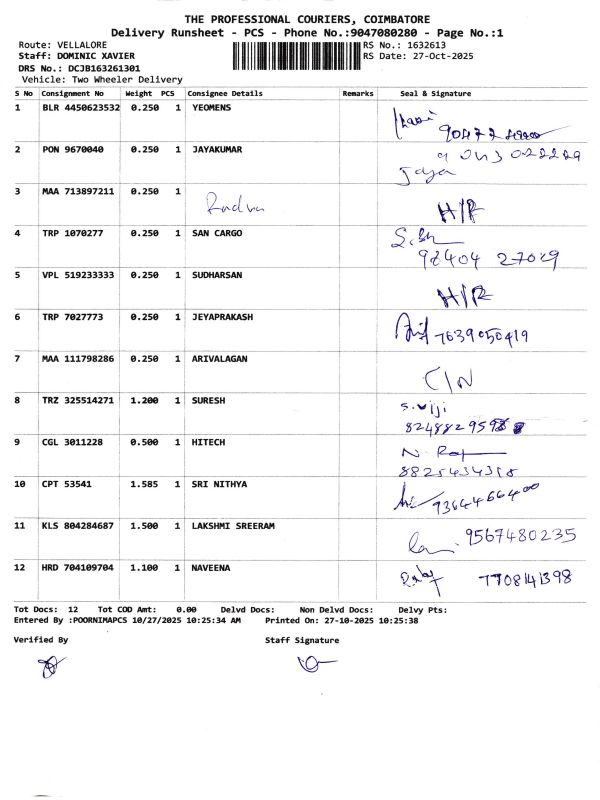 THE PROFESSIONAL COURIERS, COIMBATORE
Delivery Runsheet - PCS - Phone No.:9047080280 - Page No.:1
Route: VELLALORE RS No.: 1632613
Staff: DOMINIC XAVIER RS Date: 27-Oct-2025
DRS No.: DCJB163261301
Vehicle: Two Wheeler Delivery
S No Consignment No Weight PCS Consignee Details Remarks Seal & Signature
1 BLR 4450623532 0.250 1 YEOMENS
2 PON 9670040 0.250 1 JAYAKUMAR
Jaya
3 MAA 713897211 0.250 1
H/R
4 TRP 1070277 0.250 1 SAN CARGO
98404 27029
5 VPL 519233333 0.250 1 SUDHARSAN
H/R
6 TRP 7027773 0.250 1 JEYAPRAKASH
7639050419
7 MAA 111798286 0.250 1 ARIVALAGAN
C/N
8 TRZ 325514271 1.200 1 SURESH
S. Viji
9 CGL 3011228 0.500 1 HITECH
N. Raj
10 CPT 53541 1.585 1 SRI NITHYA
9364466400
11 KLS 804284687 1.500 1 LAKSHMI SREERAM
9567480235
12 HRD 704109704 1.100 1 NAVEENA
7708141398
Tot Docs: 12 Tot COD Amt: 0.00 Delvd Docs: Non Delvd Docs: Delvy Pts:
Entered By :POORNIMAPCS 10/27/2025 10:25:34 AM Printed On: 27-10-2025 10:25:38
Verified By Staff Signature